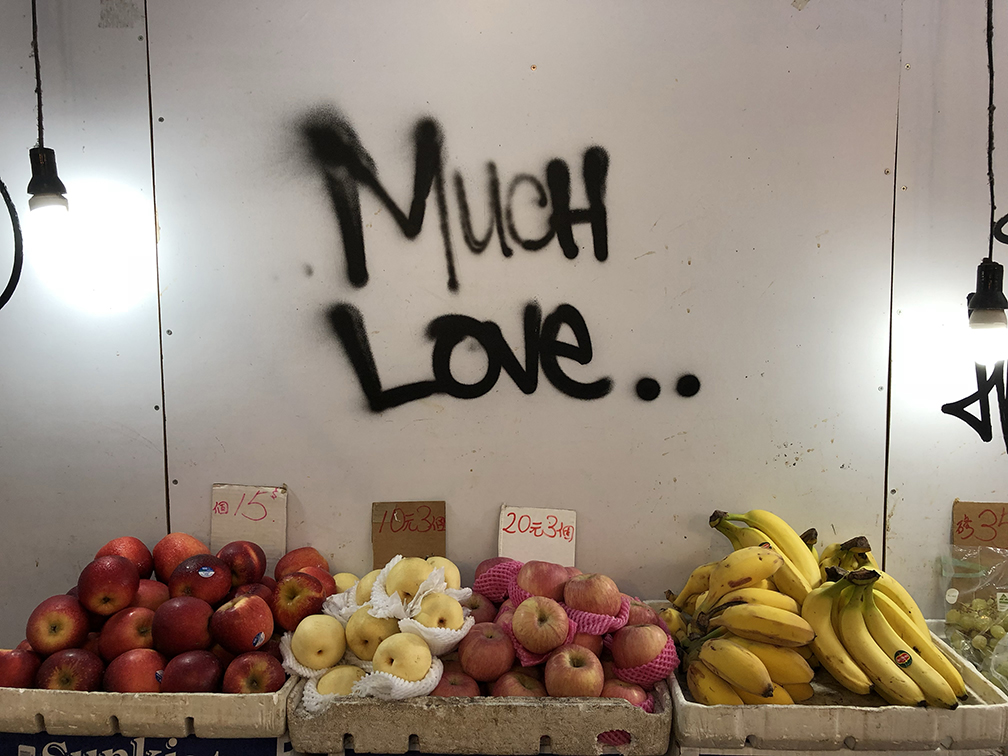 MUCH
LOVE..
個15$
10元3個
20元3個
磅3
Sunkist